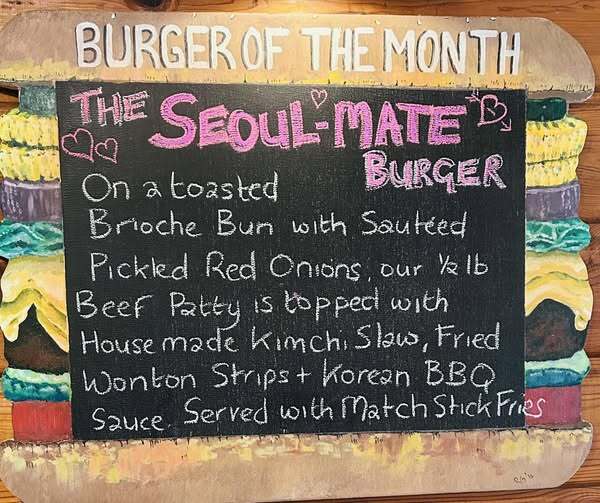 BURGER OF THE MONTH
THE SEOUL-MATE
BURGER
On a toasted
Brioche Bun with Sautéed
Pickled Red Onions, our ½ lb
Beef Patty is topped with
House made Kimchi Slaw, Fried
Wonton Strips + Korean BBQ
Sauce. Served with Match Stick Fries